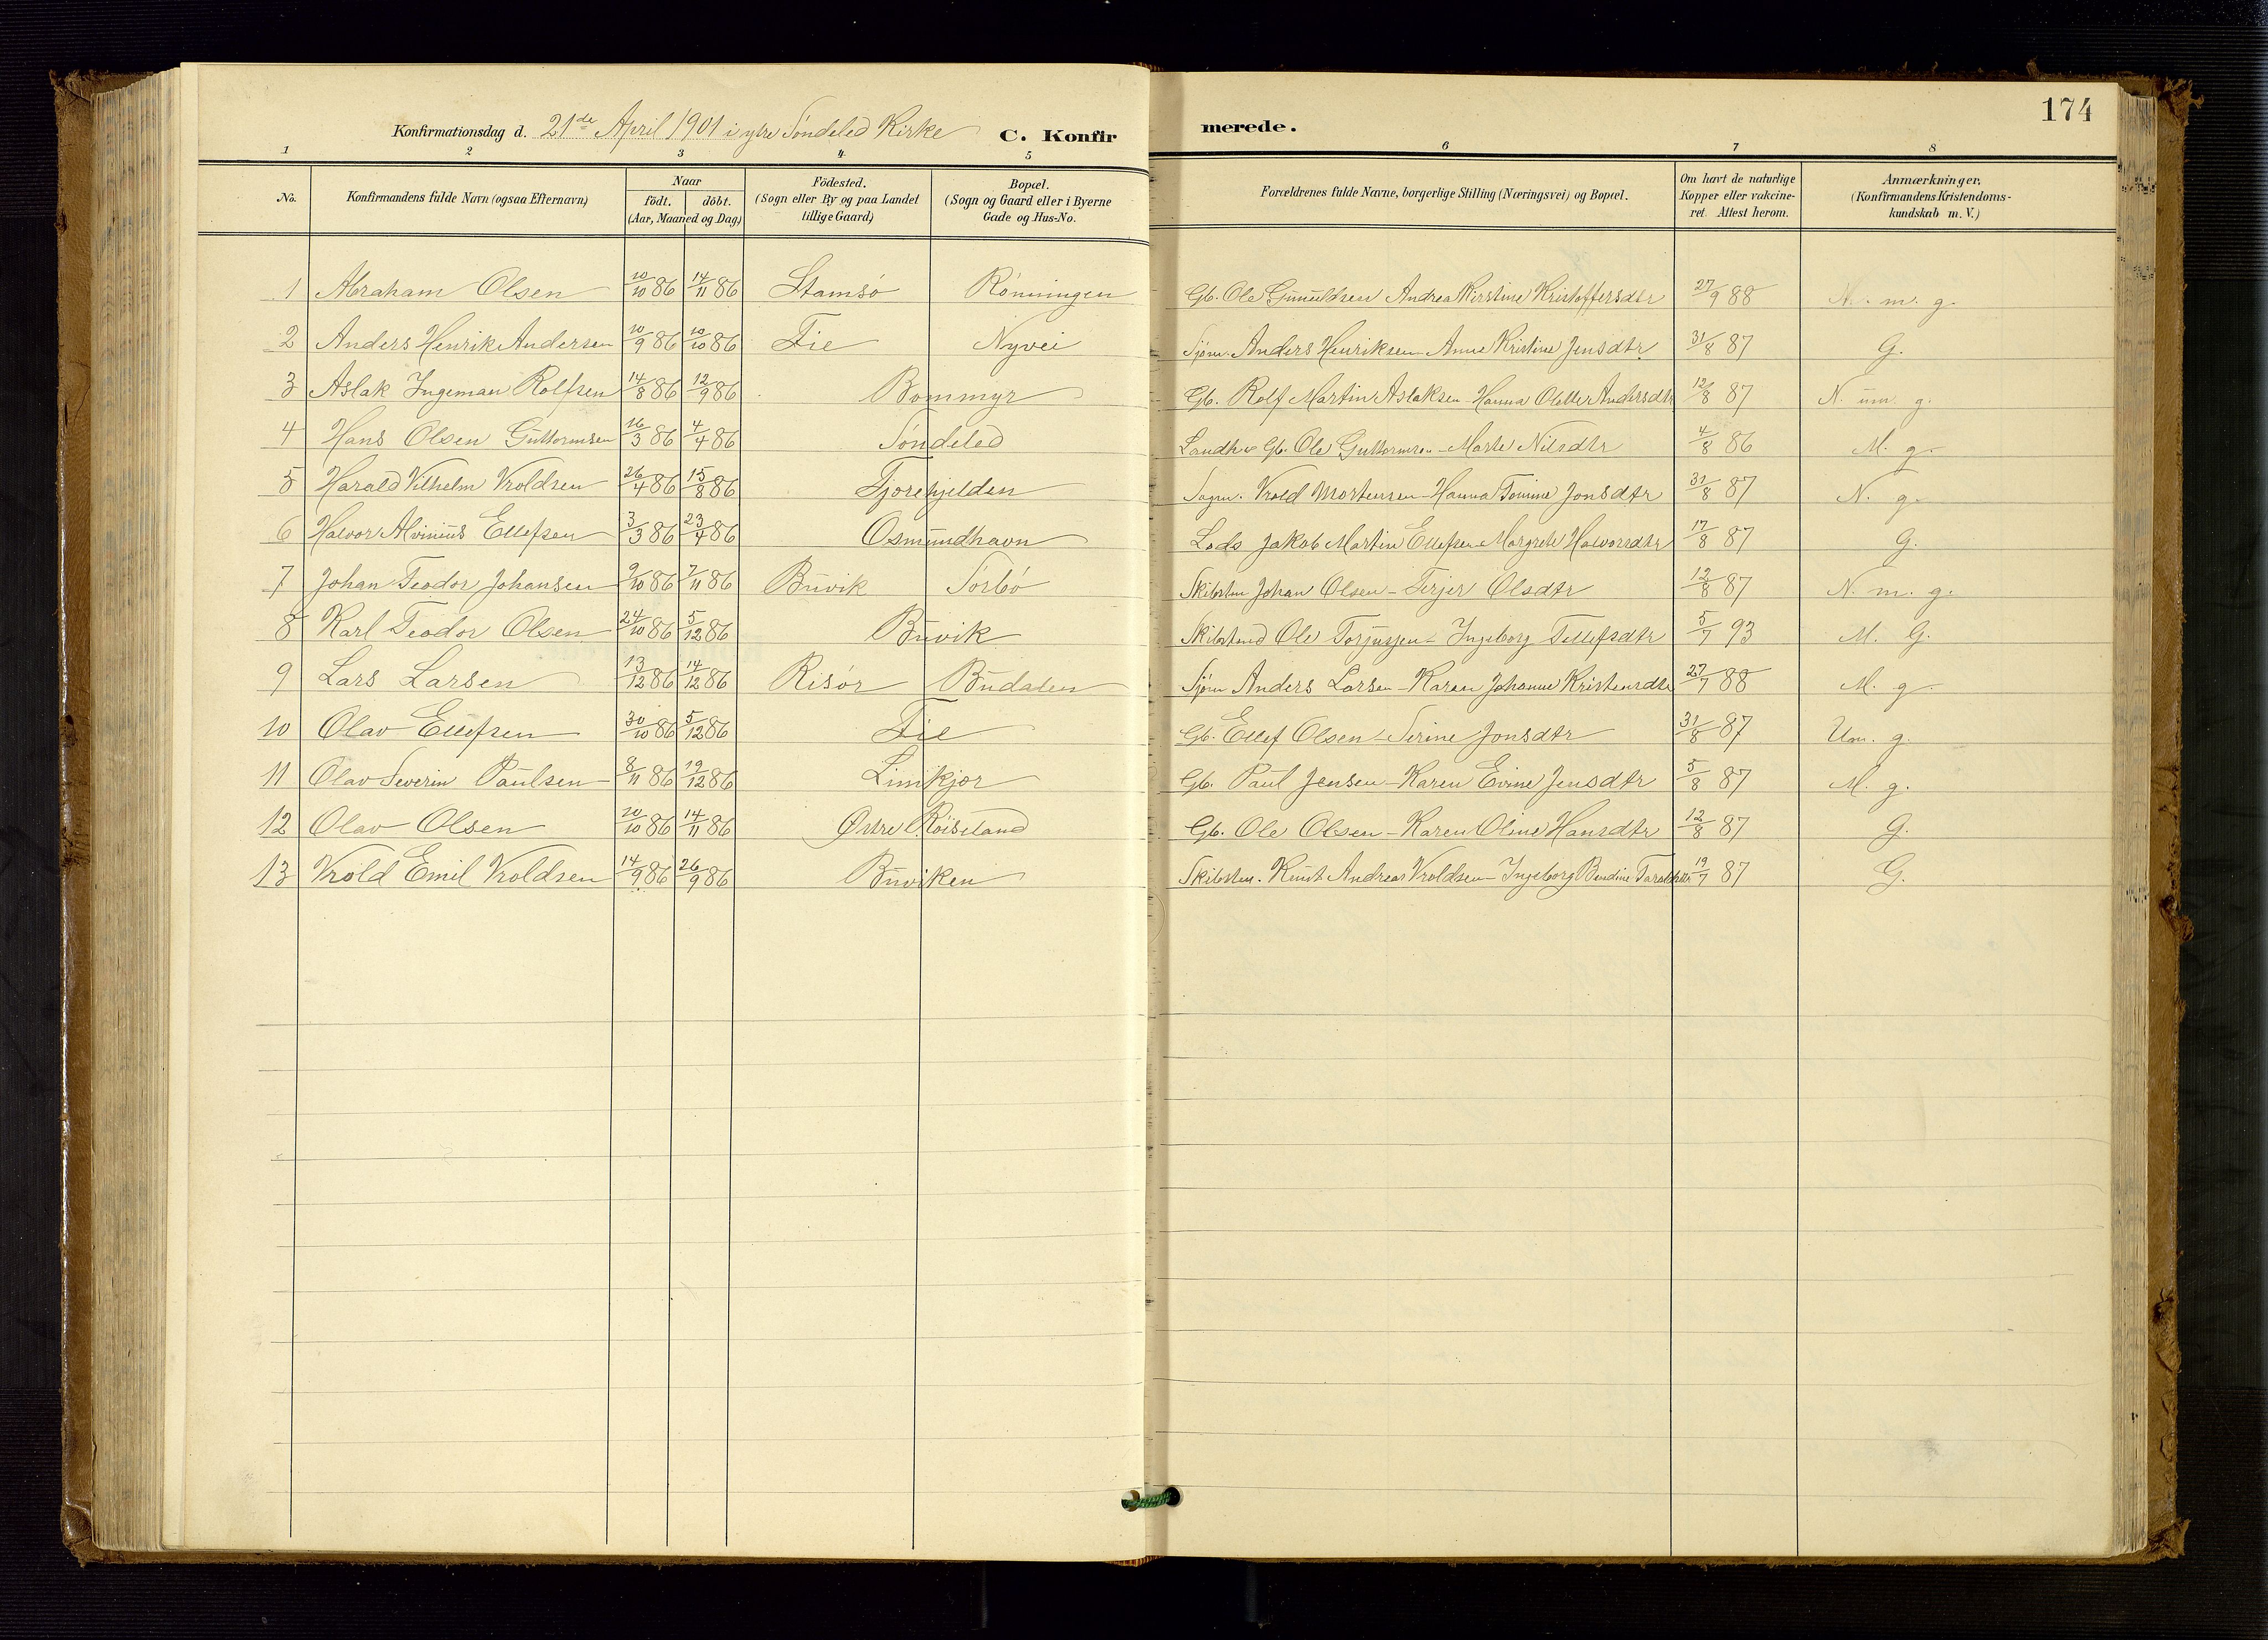 174
Konfirmationsdag d. 21de April 1901 i ytre Söndeled Kirke C. Konfirmerede.
1 2 3 4 5 6 7 8
No. Konfirmandens fulde Navn (ogsaa Efternavn) Naar födt. döbt. (Aar, Maaned og Dag) Födested. (Sogn eller By og paa Landet tillige Gaard) Bopæl. (Sogn og Gaard eller i Byerne Gade og Hus-No. Forældrenes fulde Navne, borgerlige Stilling (Næringsvei) og Bopæl. Om havt de naturlige Kopper eller vakcineret. Attest herom. Anmærkninger, (Konfirmandens Kristendomskundskab m. V.)
1 Abraham Olsen 10/10 86 14/11 86 Stamsö Rönningen Gb. Ole Gunuldsen Andrea Kirstine Kristoffersdtr 27/9 88 N. m. g.
2 Anders Henrik Andersen 10/9 86 10/10 86 Fie Nyvei Sjöm. Anders Henriksen Anne Kristine Jensdtr 31/8 87 G.
3 Aslak Ingeman Rolfsen 14/8 86 12/9 86 Bommyr Gb. Rolf Martin Aslaksen - Hanna Olette Andersdtr 12/8 87 N. um. g.
4 Hans Olsen Guttormsen 16/3 86 4/4 86 Söndeled Landh & Gb. Ole Guttormsen - Marte Nilsdtr 4/8 86 M. g.
5 Harald Vilhelm Vroldsen 26/4 86 15/8 86 Fjorekjelden Vrold Mortensen - Hanna Tomine Jonsdtr 31/8 87 N. g.
6 Halvor Alvinius Ellefsen 3/3 86 23/4 86 Osmundhavn Lods Jakob Martin Ellefsen - Margrete Halvorsdtr 17/8 87 G.
7 Johan Teodor Johansen 9/10 86 7/11 86 Buvik Sörbö Skibstm Johan Olsen - Terjer Olsdtr 12/8 87 N. m. g.
8 Karl Teodor Olsen 24/10 86 5/12 86 Buvik Skibstmd Ole Torjussen - Ingeborg Tellefsdtr 5/7 93 M. G.
9 Lars Larsen 13/12 86 14/12 86 Risör Budalen Sjöm Anders Larsen - Karen Johanne Kristensdtr 27/7 88 M. g.
10 Olav Ellefsen 30/10 86 5/12 86 Fie Gb. Ellef Olsen - Serine Jonsdtr 31/8 87 Um. g.
11 Olav Severin Paulsen 8/11 86 19/12 86 Limkjær Gb. Paul Jensen - Karen Evine Jensdtr 5/8 87 M. g.
12 Olav Olsen 10/10 86 14/11 86 Østre Röiseland Gb. Ole Olsen - Karen Oline Hansdtr 12/8 87 G.
13 Vrold Emil Vroldsen 14/9 86 26/9 86 Buviken Skibstm. Knut Andreas Vroldsen - Ingeborg Bendine 19/7 87 G.